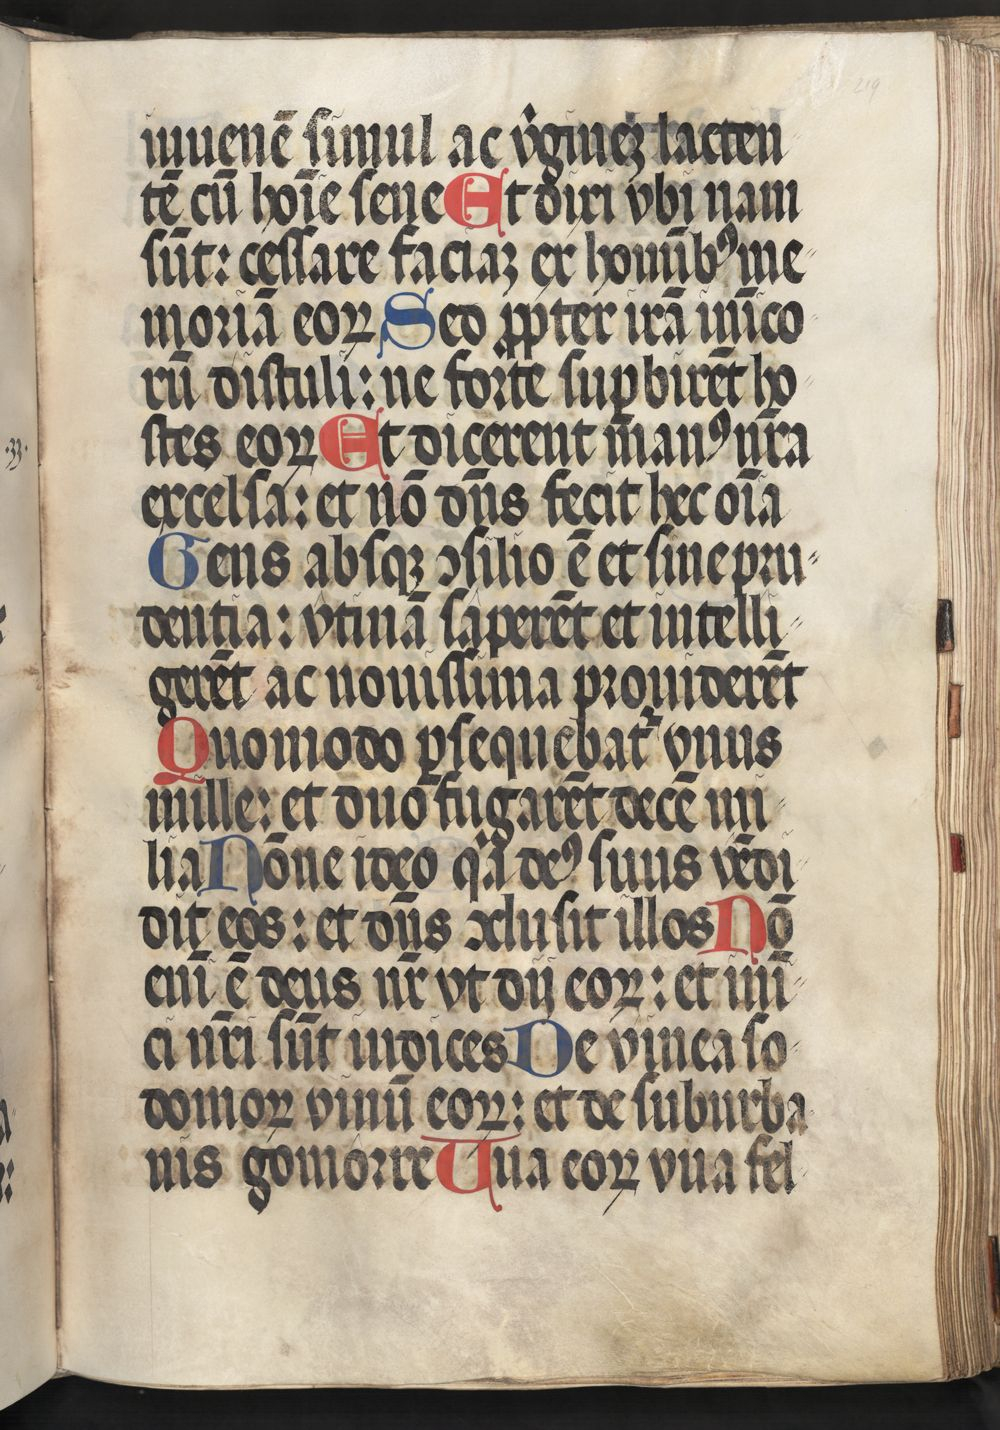 219
iuuenē simul ac v̓ginez lacten
tē cū hoīe sene Et dixi vbi nam
sūt: cessare faciaz ex homībꝰ me
moriā eoꝝ Sed ꝓpter irā inīco
rū distuli: ne forte suꝑbirēt ho
stes eoꝝ Et dicerent māuꝰ nr̄a
excelsa: et nō dn̄s fecit hec oīa
Gens absqꝫ ꝯsilio ē et sine pru
dentia: vtinā saperēt et intelli
gerēt ac nouissima prouiderēt
Quomodo ꝑsequebat᷑ vnus
mille: et duo fugarēt decē mi
lia Nōne ideo qͣ deꝰ suus vēdi
dit eos: et dn̄s ꝯclusit illos Nō
eni̅ ē deus nr̄ vt dij eoꝝ: et inī
ci nr̄i sūt iudices De vinea so
domoꝝ vinū eoꝝ: et de suburba
nis gomorre Uua eoꝝ vua fel
·33·